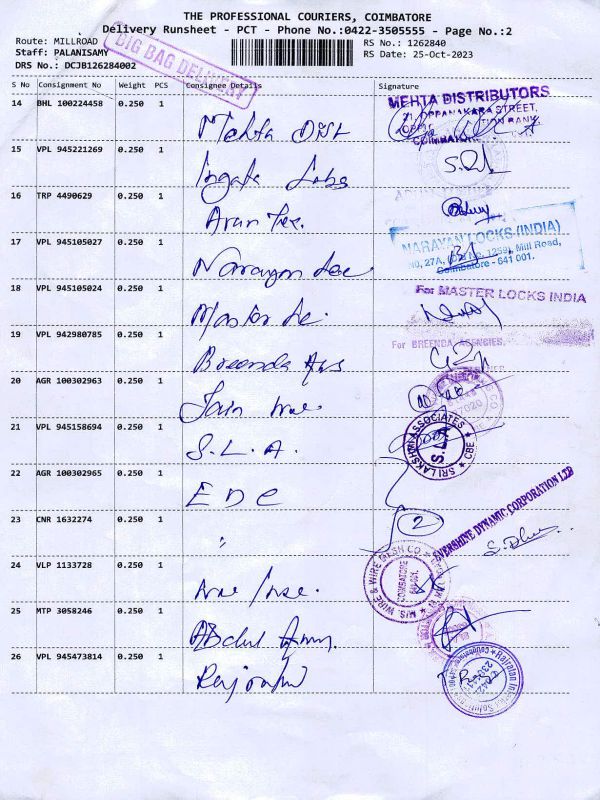 THE PROFESSIONAL COURIERS, COIMBATORE
Delivery Runsheet - PCT - Phone No.:0422-3505555 - Page No.:2
Route: MILLROAD
RS No.: 1262840
Staff: PALANISAMY
RS Date: 25-Oct-2023
DRS No.: DCJB126284002
BIG BAG DELIVERY
S No Consignment No Weight PCS Consignee Details Signature
14 BHL 100224458 0.250 1 Mehta Dist
MEHTA DISTRIBUTORS
OPPANAKARA STREET,
COIMBATORE
15 VPL 945221269 0.250 1
16 TRP 4490629 0.250 1 Arun
17 VPL 945105027 0.250 1 Narayan
NARAYAN LOCKS (INDIA)
No, 27A, 1259), Mill Road,
Coimbatore - 641 001.
18 VPL 945105024 0.250 1 Master
For MASTER LOCKS INDIA
19 VPL 942980785 0.250 1 Breenda
For BREENDA AGENCIES,
20 AGR 100302963 0.250 1 Jain
21 VPL 945158694 0.250 1 S.L.A.
SRI LAKSHMI ASSOCIATES
S.L.A
CBE
22 AGR 100302965 0.250 1 EDC
23 CNR 1632274 0.250 1 "
2
EVERSHINE DYNAMIC CORPORATION LTD
24 VLP 1133728 0.250 1
M/S. WIRE & WIRE MESH CO
COIMBATORE
641 001.
25 MTP 3058246 0.250 1 Abdul
26 VPL 945473814 0.250 1